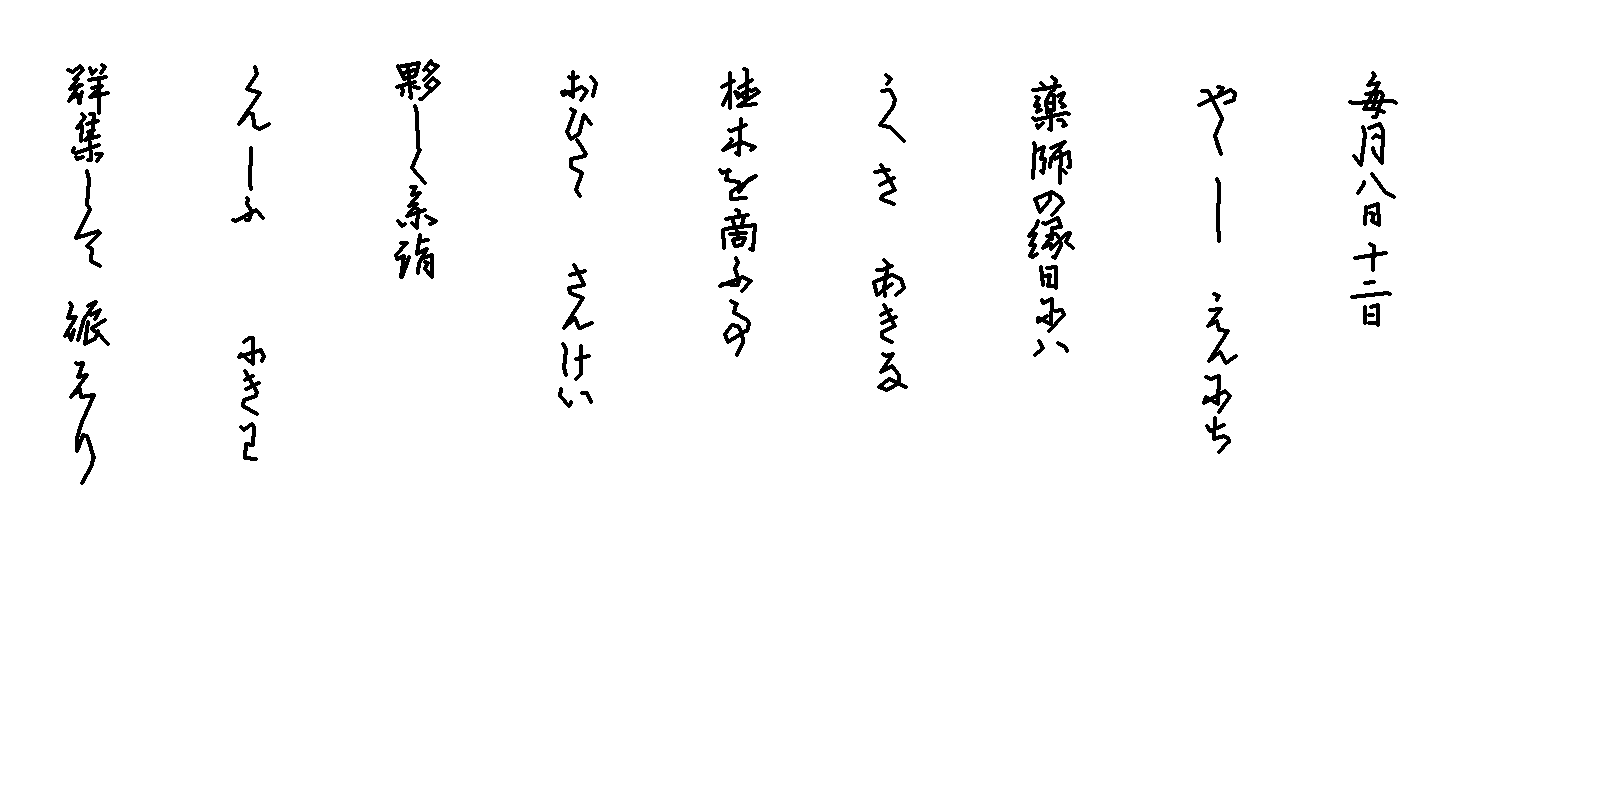 毎月八日十二日
やくし えんにち
薬師の縁日にハ
うへき あきな
植木を商ふ事
おひたゝ さんけい
夥しく参詣
くんしふ にきわ
群集して賑えり